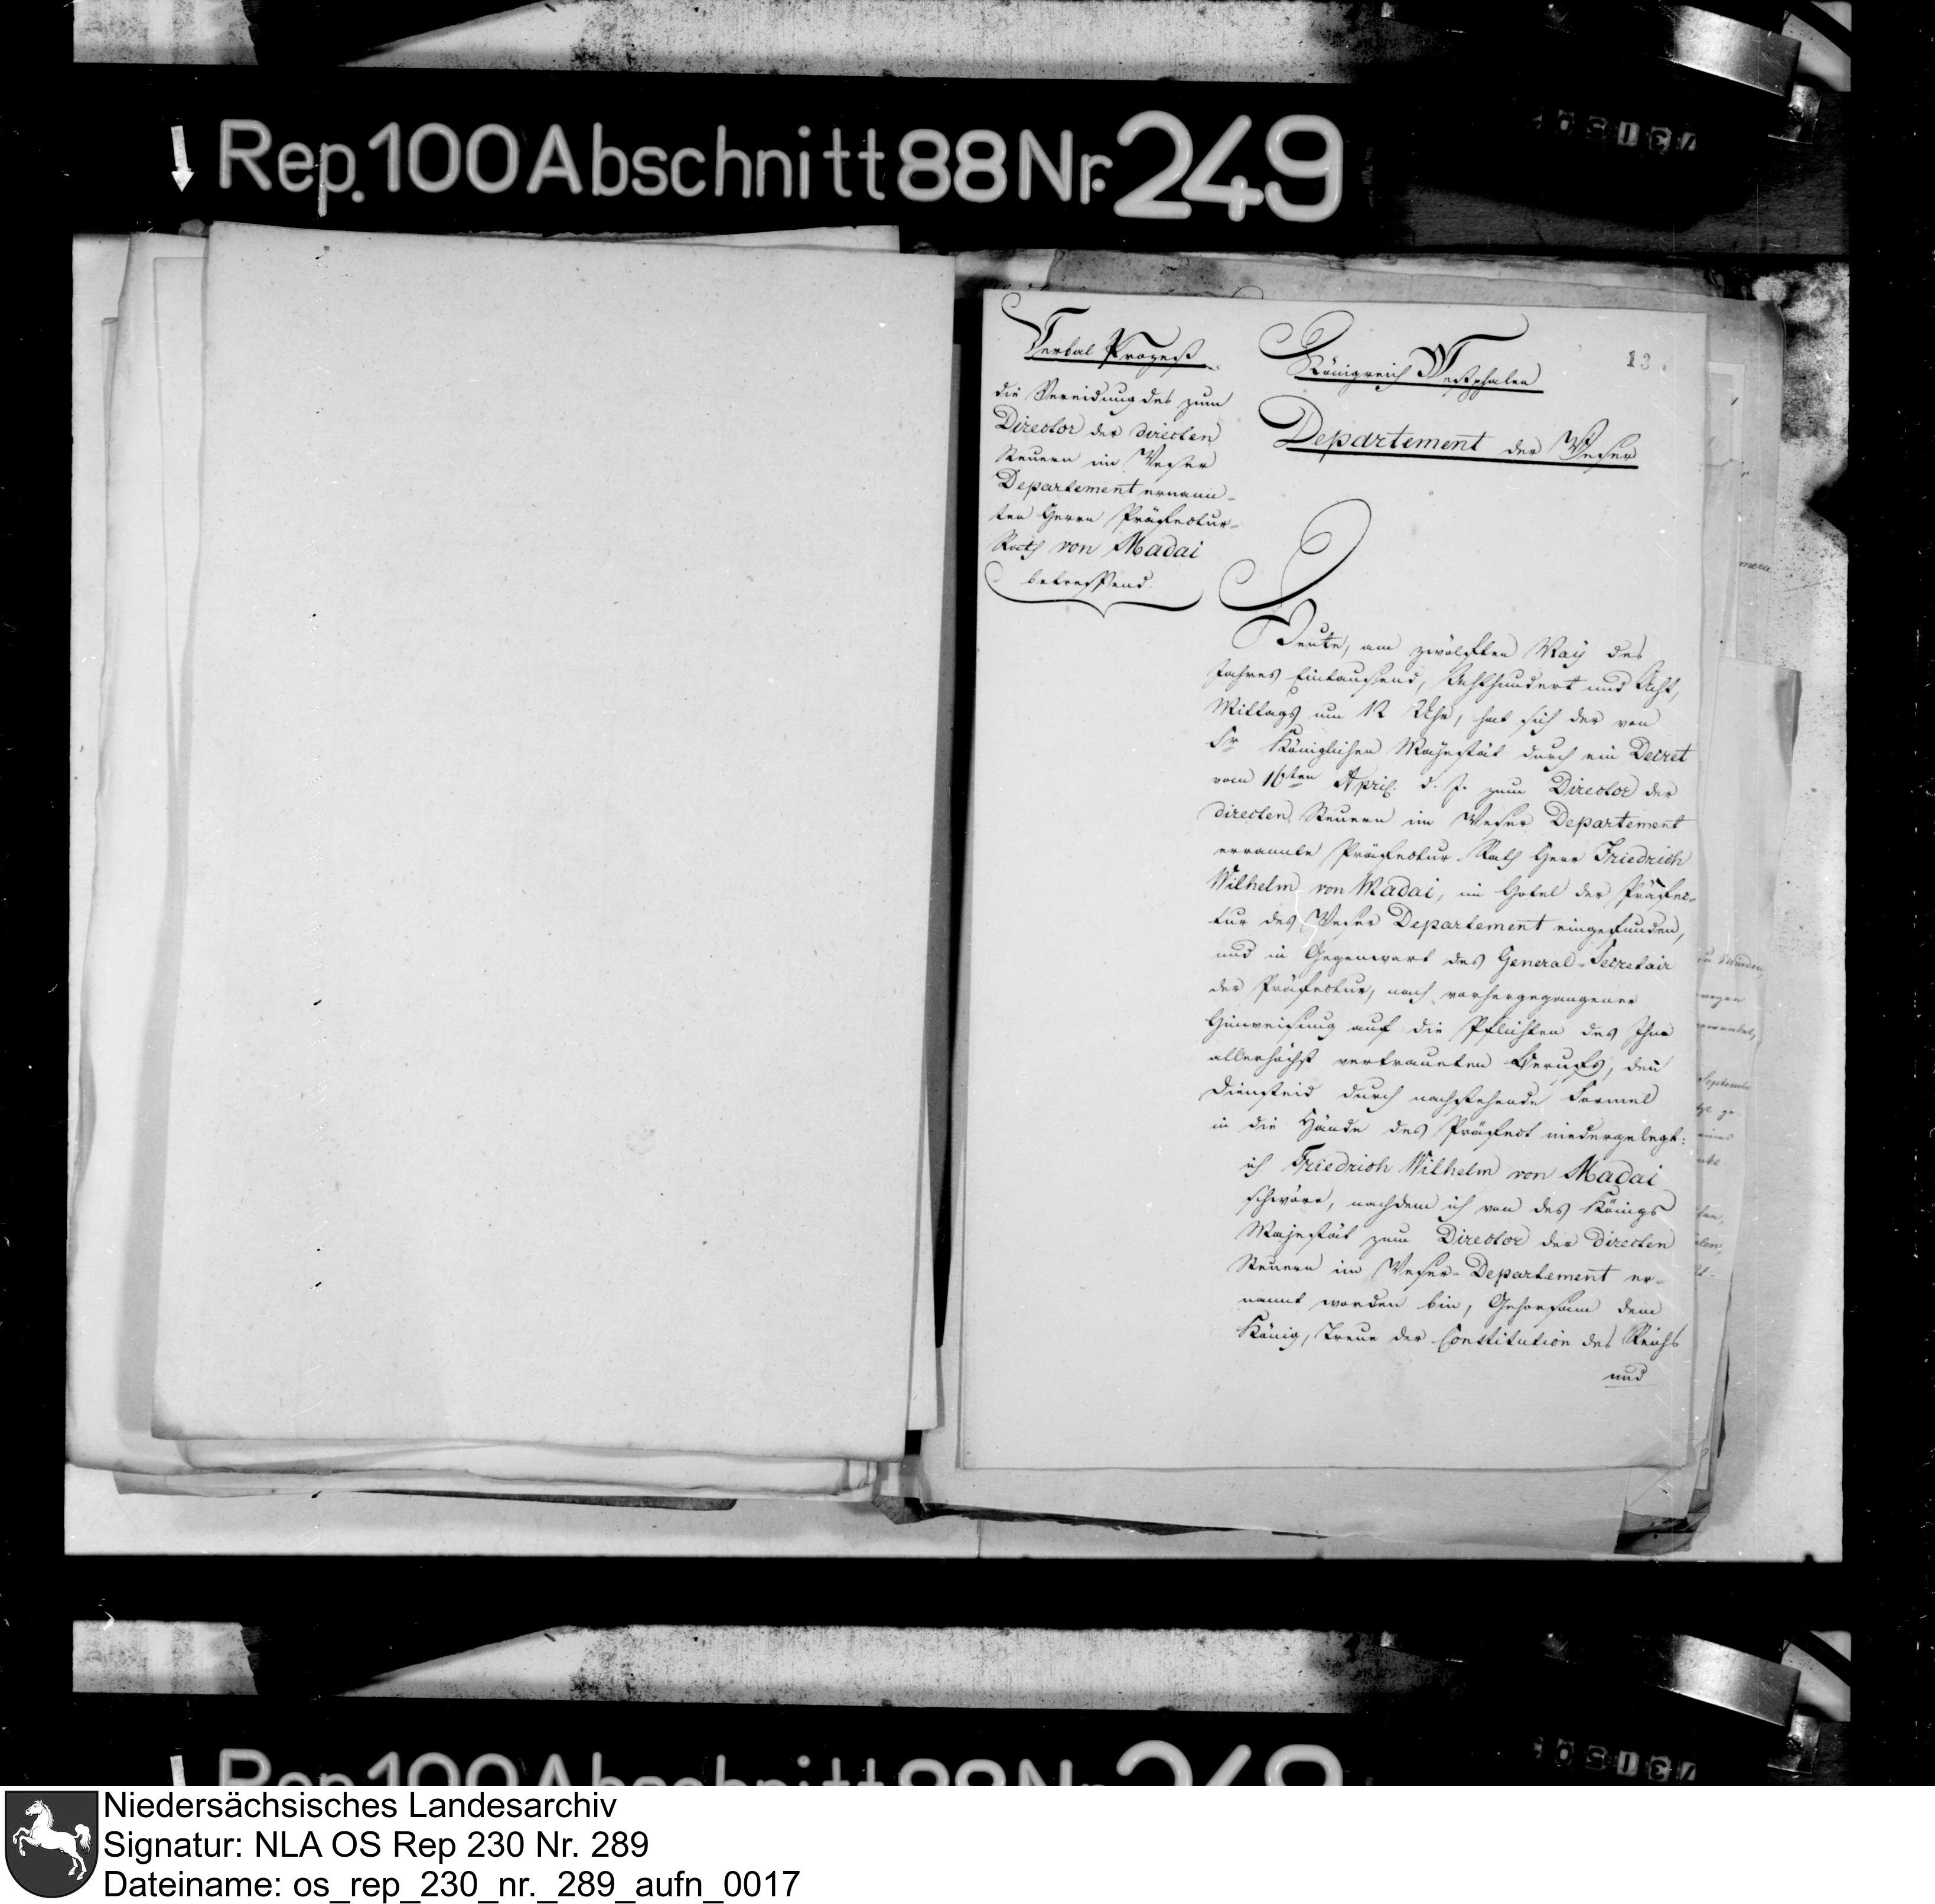 Rep. 100 Abschnitt 88 Nr. 249
13.
Verbal Prozeß
die Vereidung des zum
Director der directen
Steuern im Weser
Departement ernann-
ten Herrn Präfectur-
Rath von Madai
betreffend.
Königreich Westphalen
Departement der Weser
Heute, am zwölften May des
Jahres Eintausend, Achthundert und Acht,
Mittags um 12 Uhr, hat sich der von
Sr Königlichen Majestät durch ein Decret
vom 16ten April d. J. zum Director der
directen Steuern im Weser Departement
ernannte Präfectur-Rath Herr Friedrich
Wilhelm von Madai, im Hotel der Präfec-
tur des Weser Departement eingefunden,
und in Gegenwart des General-Secretair
der Präfectur, nach vorhergegangener
Hinweisung auf die Pflichten des Ihm
allerhöchst vertraueten Berufs, den
Diensteid durch nachstehende Formel
in die Hände des Präfect niedergelegt:
ich Friedrich Wilhelm von Madai
schwöre, nachdem ich von des Königs
Majestät zum Director der directen
Steuern im Weser-Departement er-
nannt worden bin, Gehorsam dem
König, Treue der Constitution des Reichs
und
Niedersächsisches Landesarchiv
Signatur: NLA OS Rep 230 Nr. 289
Dateiname: os_rep_230_nr._289_aufn_0017